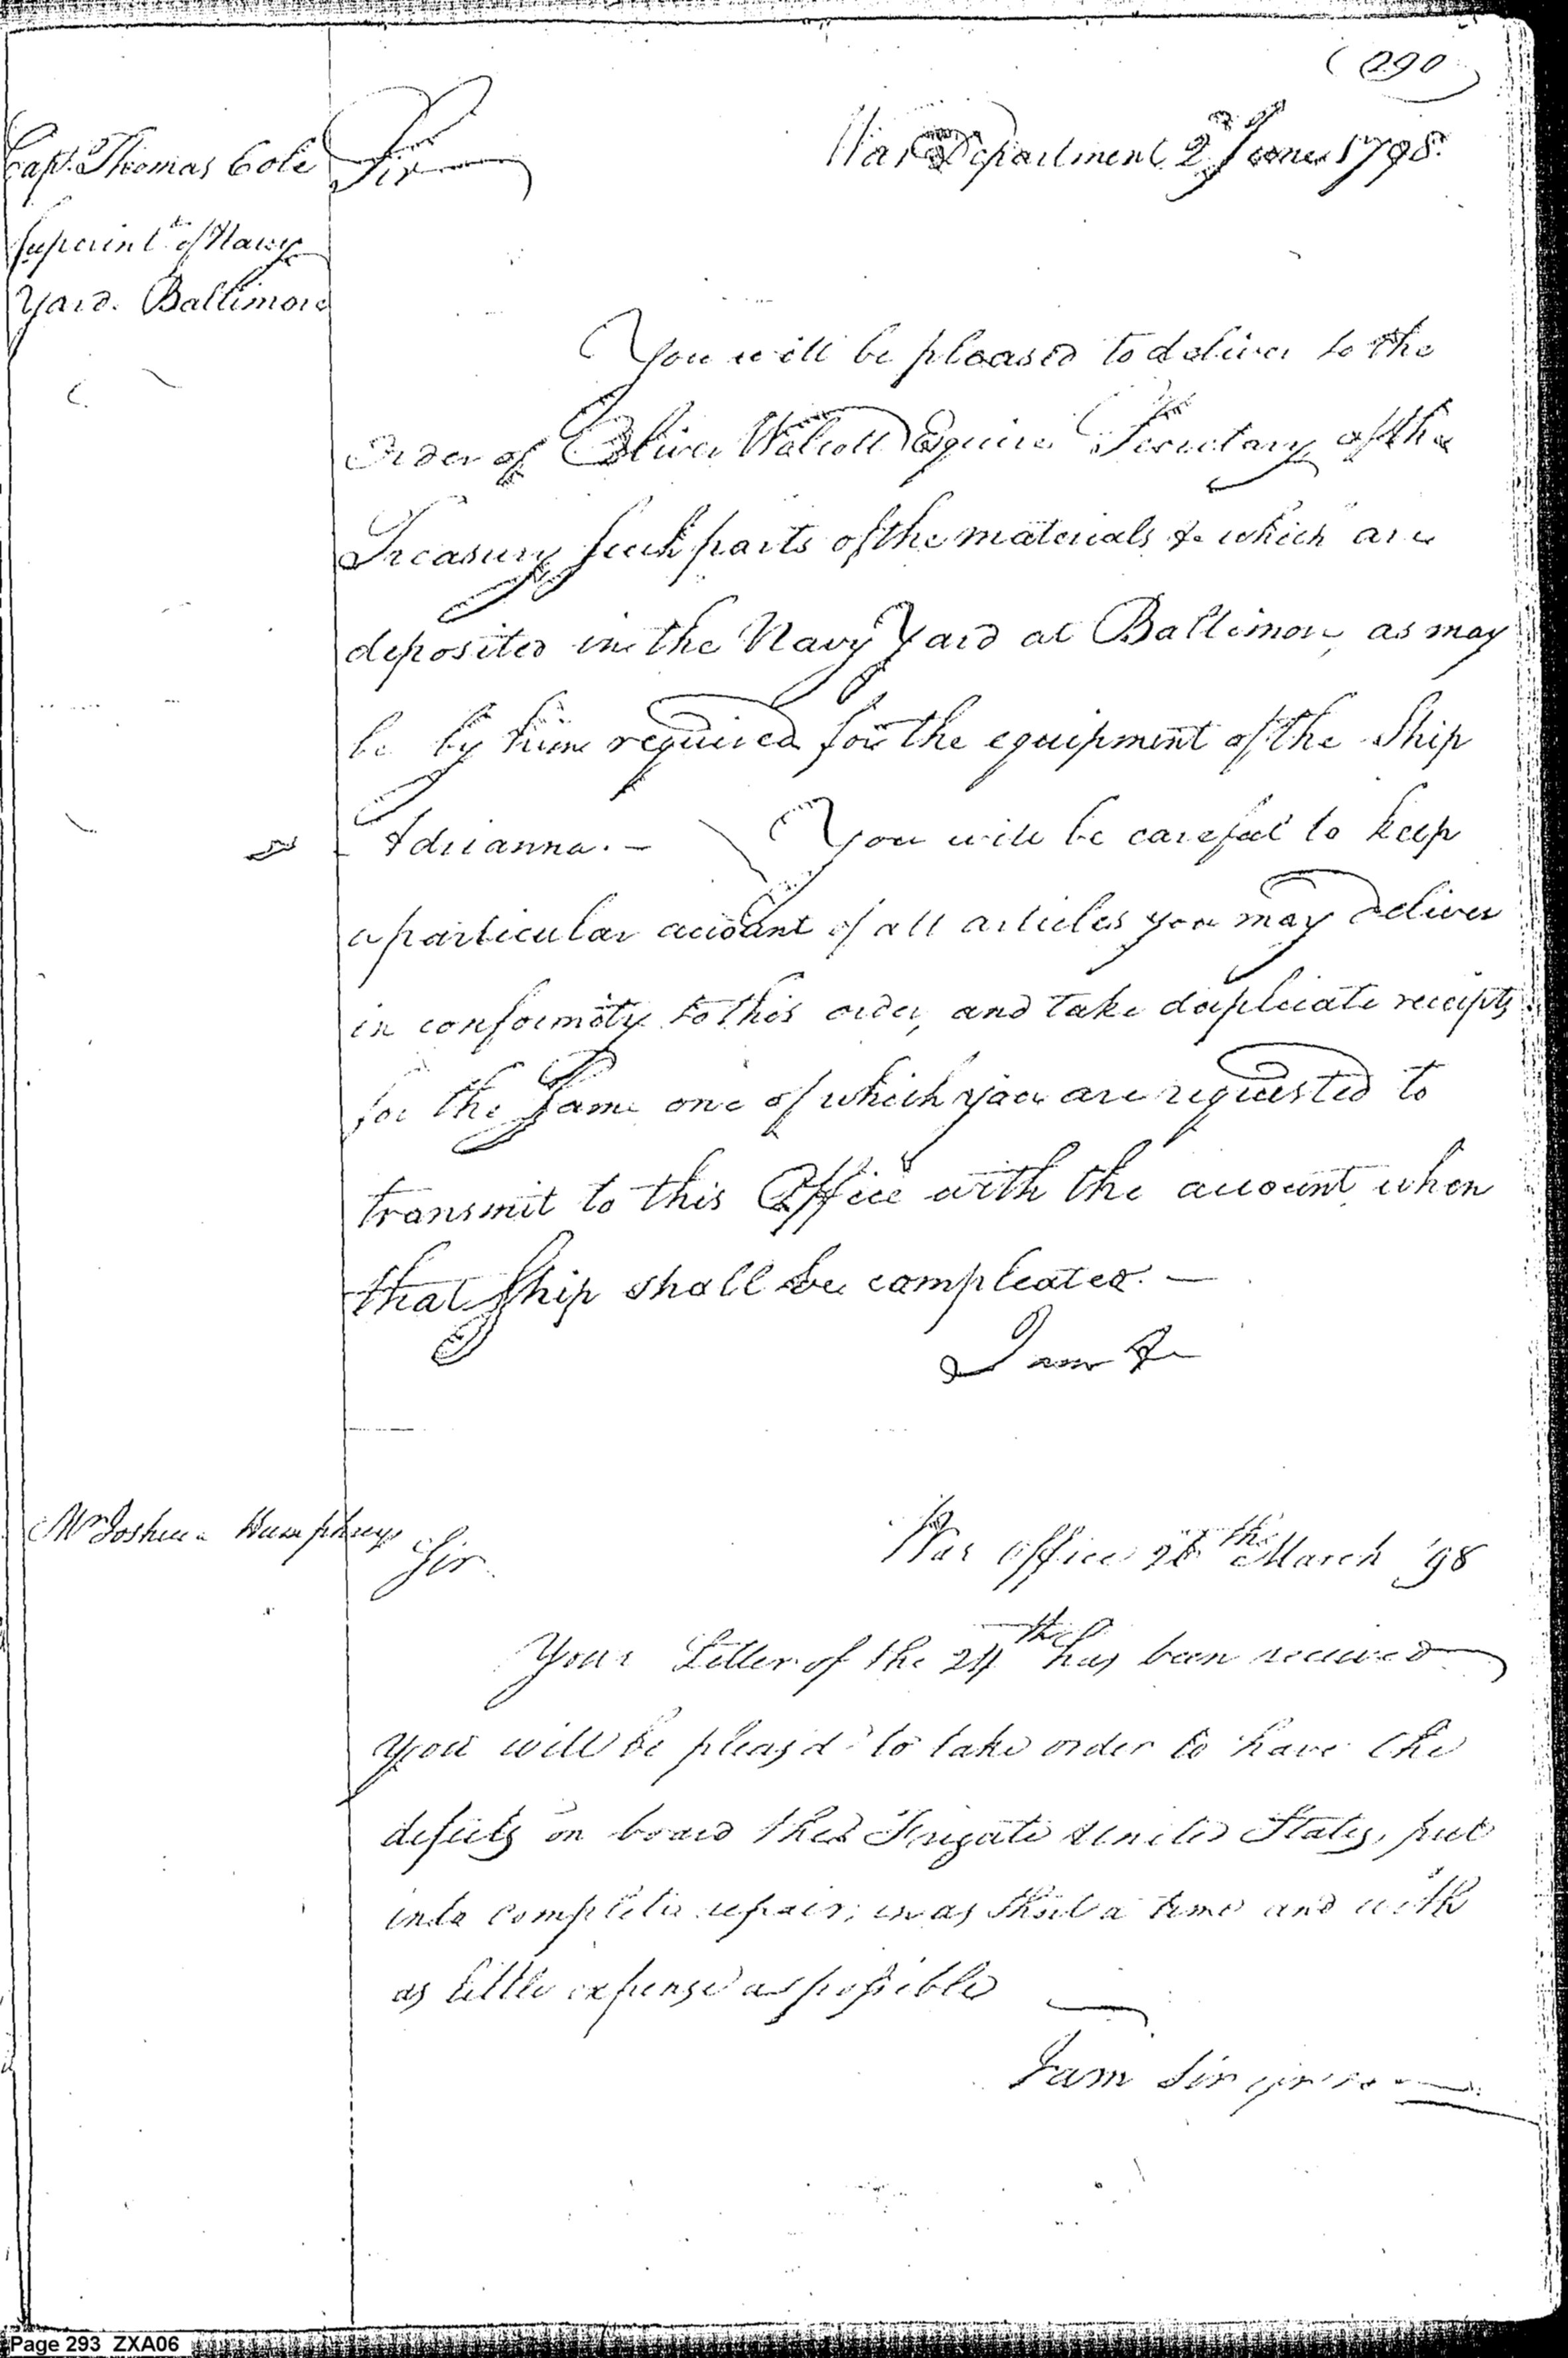 (290)
War Department 2d June 1798.
Capt. Thomas Cole
Superintt. of Navy
Yard. Baltimore
Sir
You will be pleased to deliver to the
Order of Oliver Wolcott Esquire Secretary of the
Treasury such parts of the materials &c which are
deposited in the Navy Yard at Baltimore, as may
be by him required for the equipment of the Ship
Adrianna. — You will be careful to keep
a particular account of all articles you may deliver
in conformity to this order, and take duplicate receipts
for the Same one of which you are requested to
transmit to this Office with the account when
that Ship shall be compleated. —
I am &c
Mr Joshua Humphreys
War Office 26th March '98
Sir
Your Letter of the 24th has been received
you will be pleas'd to take order to have the
defects on board the Frigate United States, put
into complete repair, in as short a time and with
as little expense as possible
I am Sir
Page 293 ZXA06